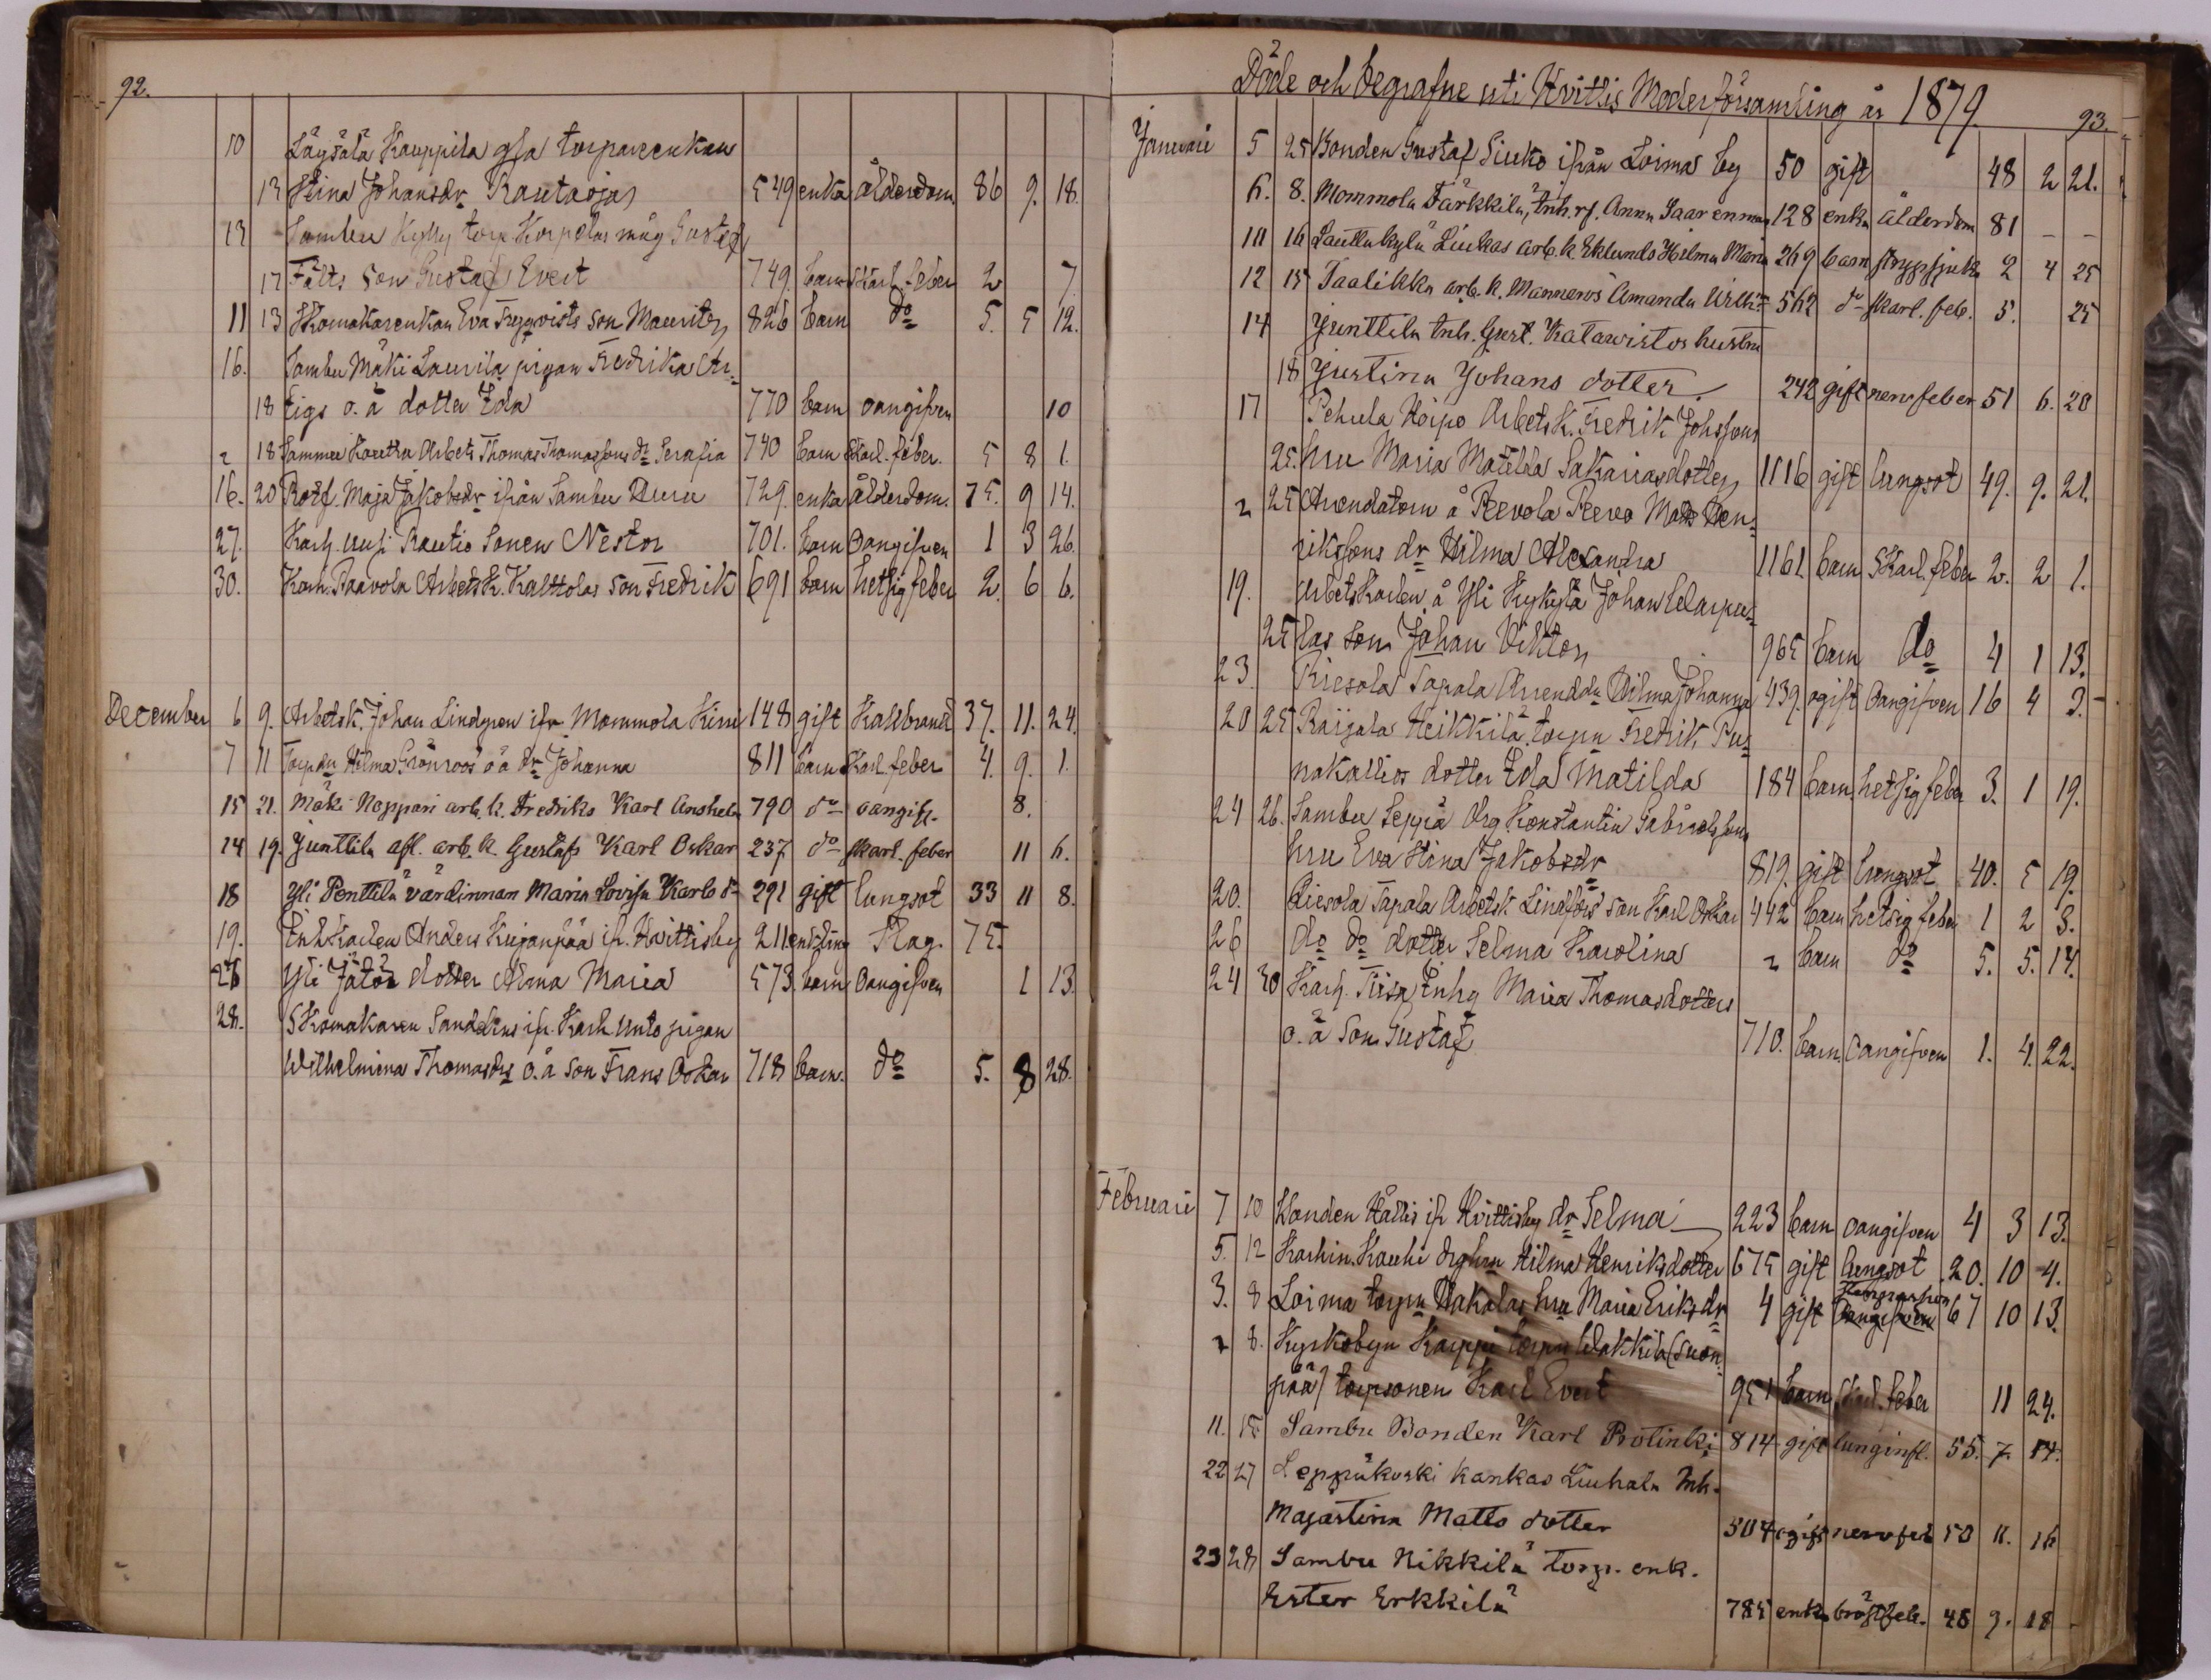 92.
10 Läysälä Kauppila gla torpareenkan
13 Stina Johansdr Rautaoja 549 enka ålderdom 86 9. 18.
13 Sambu Kylly torp Korpelas måg Gustaf
17 Fälts son Gustaf Evert 749. barn skarl. feber 2 7
11 13 Skomakarenkan Eva Frygvists son Maurits 826 barn do 5. 5 12.
16. Sambu Mäki Laurila pigan Fredrika
18 Eigs o.ä dotter Ida 770 barn oangifven 10
18 Sammu Arbets Thomas Thomassons dr Serafia 740 barn Skarl. feber. 5 8 1.
16. 20 Rotf. Maja Jakobsdr ifrån Sambu Duru 729. enka ålderdom. 75. 9 14.
27. Karh. Uusi Rautio Sonen Nestor 701. barn Oangifven 1 3 26.
30. Karh. Paavola Arbetsk. Kalttolas son Fredrik 691 barn hetsigfeber 2. 6 6.
December 6 9. Arbetsk. Johan Lindgren ifr. Mommola Kirri 148 gift Kallbrand 37. 11. 24.
7 11 Torpdn Hilma Grönroos o ä dr Johanna 811 barn Skarl. feber 4. 9. 1.
15 21. Mäki Noppari arb. k. Fredriks Karl Anshelm 790 do oangifv. 8.
14 19. Junttila afl. arb. k. Gustafs Karl Oskar 237 do skarl. feber 11 6.
18 Yli Penttilä värdinnan Maria Lovisa Karls dr 291 gift lungsot 33 11 8.
19. Inh Karlen Anders Kujanpää ifr. Hvittisby 211 enkling Slag. 75.
26 Yli Jätös dotter Alma Maria 573 barn Oangifven 1 13.
28. Skomakaren Sandelins ifr. Karh. Unto pigan
Wilhelmina Thomasdrs o.ä son Frans Oskar 718 barn. do 5. 8 28.
Döde och begrafne uti Hvittis Moderförsamling år 1879
93.
Januari 5 25 Bonden Gustaf Siuko ifrån Loimas by 50 gift 48 2 21.
6. 8. Mommola Färkkilä, Inh. rf. Anna Saarenmaa 128 enka ålderdom 81 – –
10 16 Lauttakylä Liukas arb. k. Eklunds Hilma Maria 269 barn strypsjuk. 2 4 25
12 15 Taalikka arb. k. Manneros Amanda Wilh. 562 do skarl. feb. 5. 25
14 Junttila Inh. Gust. Katawistos hustru
18 Justina Johans dotter. 242 gift nervfeber 51 6. 20
17 Pehula Koipo Arbetsk. Fredrik Johssons
25. hru Maria Matilda Sakariasdotter 1116 gift lungsot 49. 9. 21.
25 Arrendatorn å Peevola Peevo Mats Hen=
rikssons dr Hilma Alexandra 1161 barn Skarl. feber 2. 2 1.
19. Arbetskarlen å Yli Kykystä Johan
25 las son Johan Viktor 965 barn do 4 1 13.
23. Riesola Sapala Arrenddn Hilma Johanna 439. ogift Oangifven 16 4 3.
20 25 Raijala Heikkilä torpn Fredrik Pus=
nakallios dotter Ida Matilda 184 barn hetsigfeber 3. 1 19.
24 26. Sambu Seppä drg Konstantin Gabrielssons
hru Eva Stina Jakobsdr 819. gift lungsot 40. 5 19.
20. Riesola Tapala Arbetsk Lindfors son Karl Oskar 442 barn hetsig feber 1 2 3.
26 do do dotter Selma Karolina barn do 5. 5. 14.
24 30 Karh. Tiisa Inhg Maria Thomasdotters
o.ä Son Gustaf 710. barn oangifven 1. 4. 22.
Februari 7 10 Bonden Hällis ifr Hvittisby dr Selma 223 barn oangifven 4 3 13.
5. 12 Karhin. Kauhi drghru Hilma Henriksdotter 675 gift lungsot 20. 10 4.
3. 8 Loima torpn Hakalas hru Maria Eriksdr 4 gift 67 10 13.
8. Kyrkobyn Karppi torpn Wakkila (Suon=
pää) torpsonen Karl Evert 951 barn skarl. feber 11 24.
11. 15 Sambu Bonden Karl Protinki 814 gift lunginfl. 55. 7. 14.
22 27 Leppäkoski Kankas Liuhala Inh.
Majastina Matts dotter 504 gift nervfeb 50 11. 16
23 28 Sambu Nikkilä torp. enk.
Ester Erkkilä 785 enk. bröstfeb. 48 9. 18